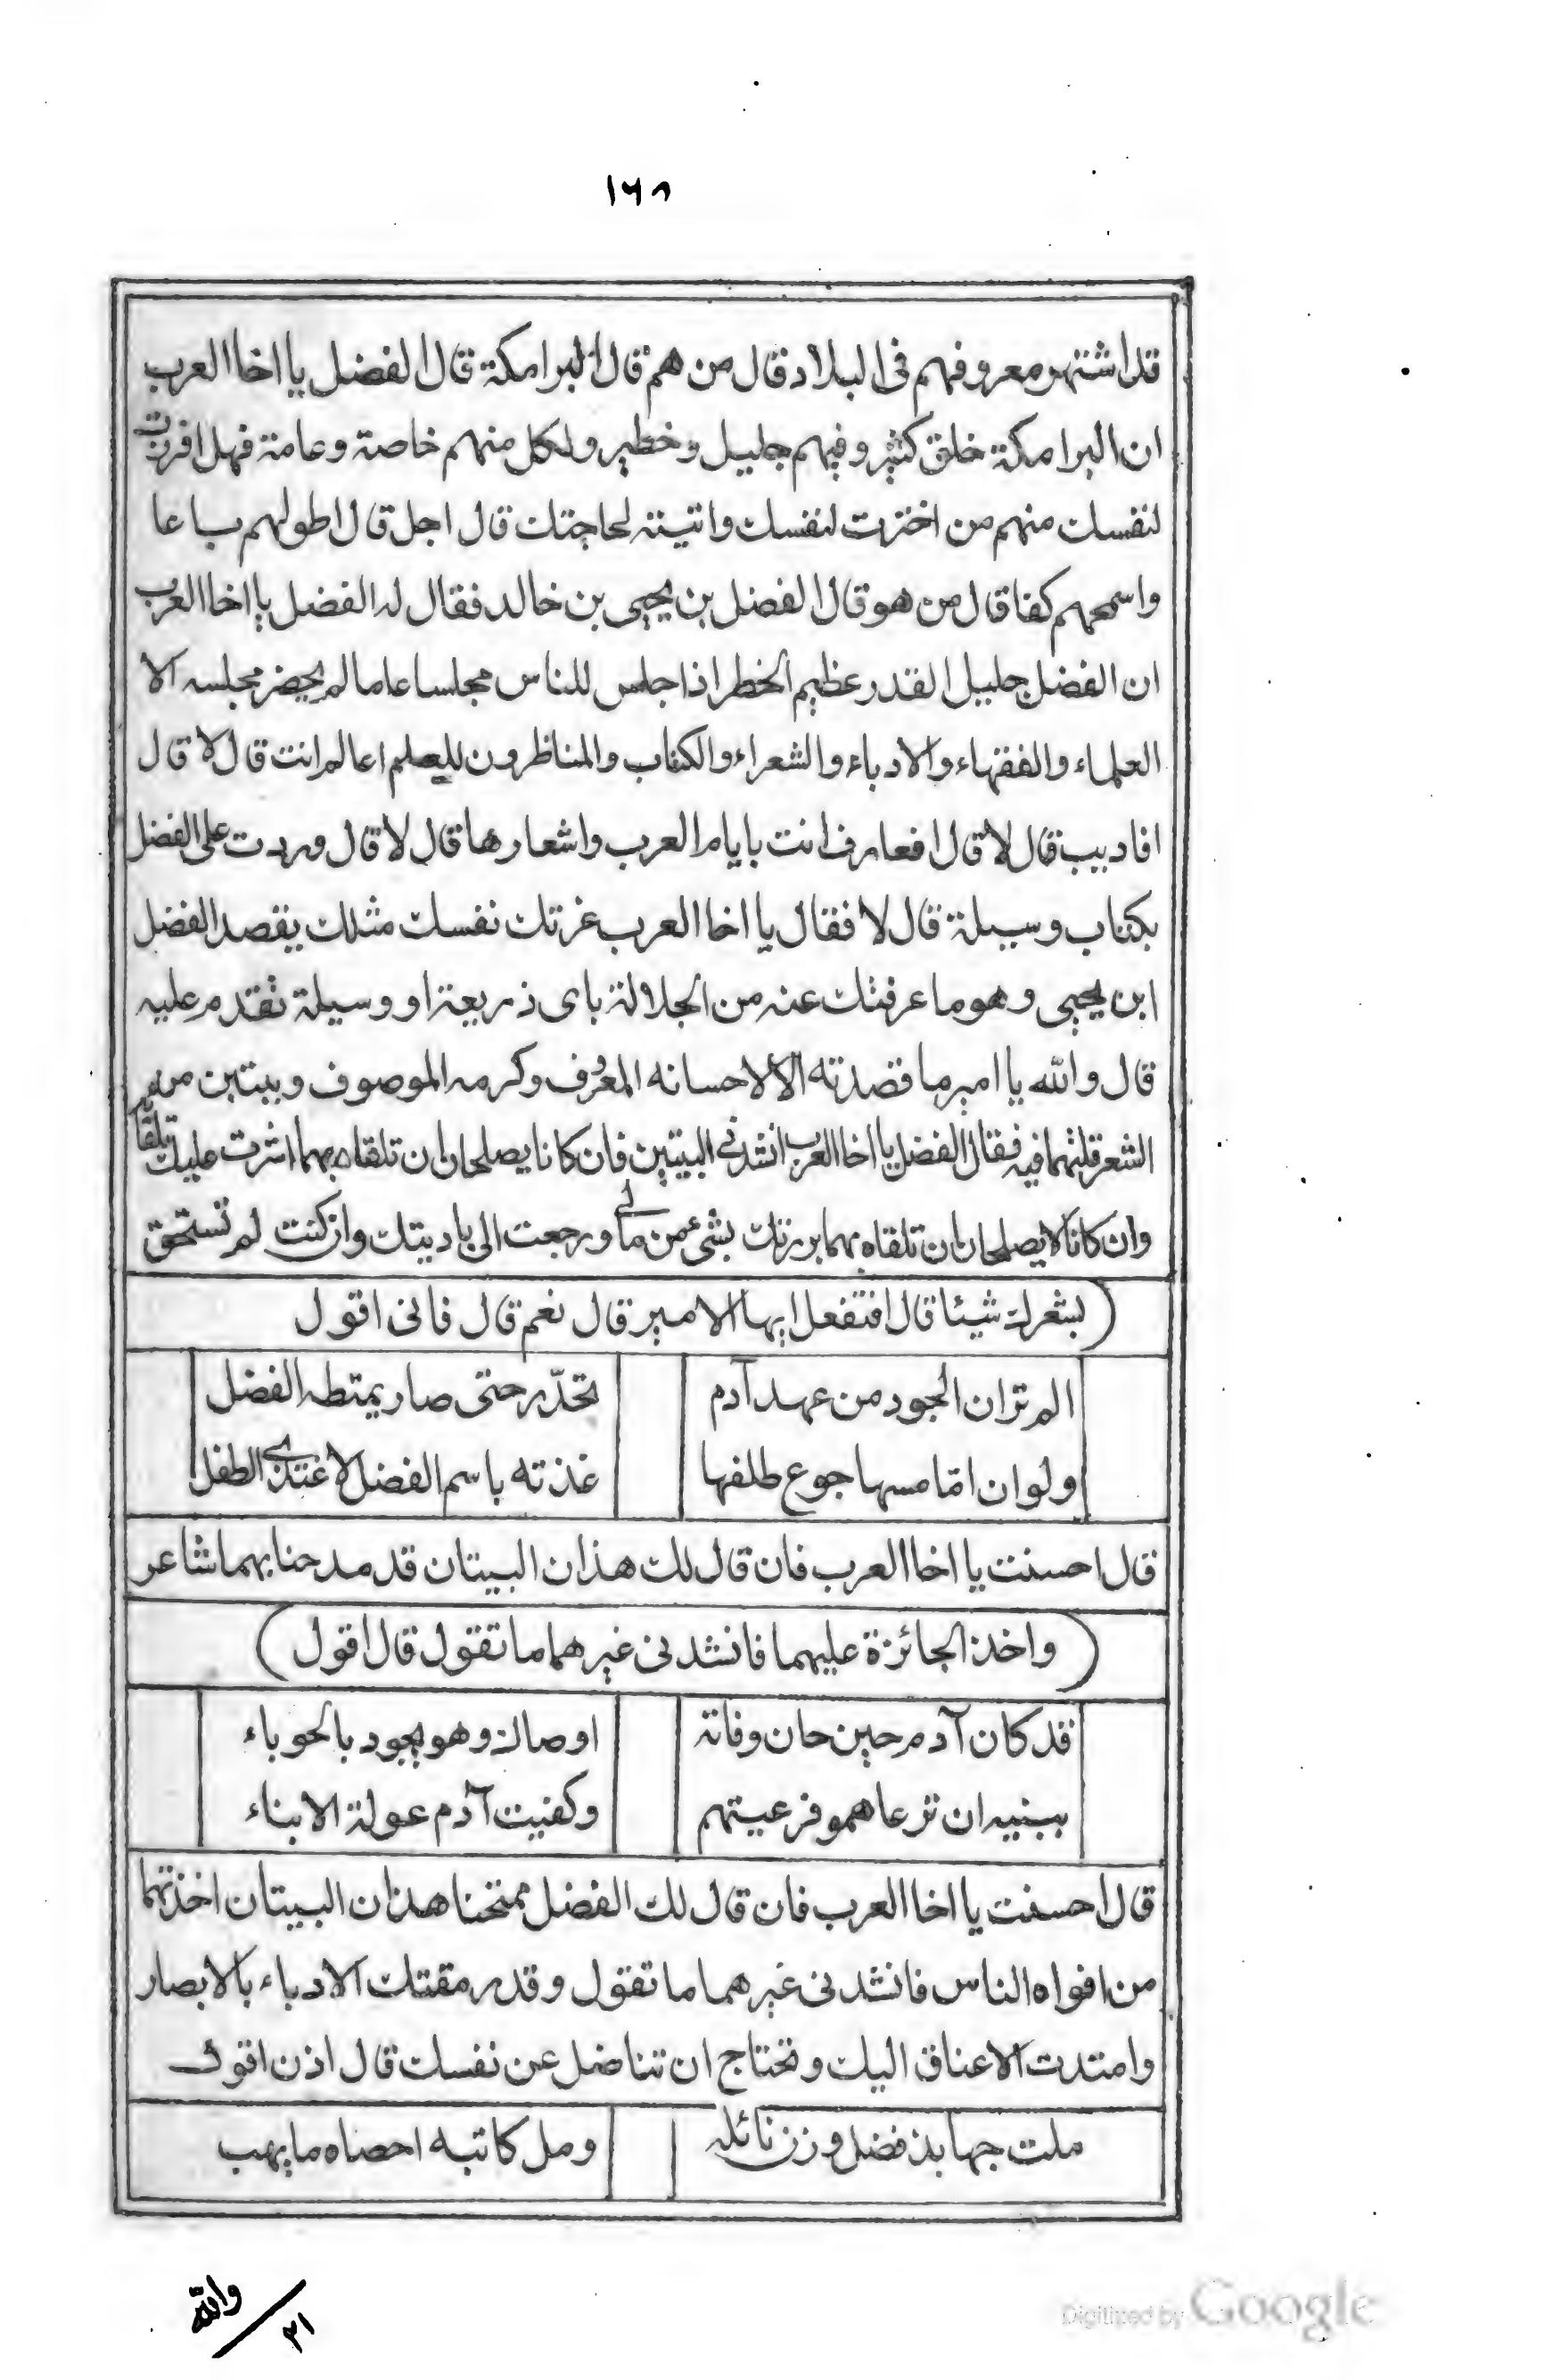 ١٦٨
قد اشتهر معروفهم فى البلاد قال من هم قال البرامكة قال الفضل يا اخا العرب
ان البرامكة خلق كثير وفيهم جليل وخطير ولكل منهم خاصة وعامة فهل افرزت
لنفسك منهم من اخترت لنفسك واتيته لحاجتك قال اجل قال اطولهم باعا
واسمحهم كفا قال من هو قال الفضل بن يحيى بن خالد فقال له الفضل يا اخا العرب
ان الفضل جليل القدر عظيم الخطر اذا جلس للناس مجلسا عاما لم يحضر مجلسه الا
العلماء والفقهاء والادباء والشعراء والكتاب والمناظرون للعلم اعالم انت قال لا قال
افاديب قال لا قال افعارف انت بايام العرب واشعارها قال لا قال وردت على الفضل
بكتاب وسيلة قال لا فقال يا اخا العرب غرتك نفسك مثلك يقصد الفضل
ابن يحيى وهو ما عرفتك عنه من الجلالة باى ذريعة او وسيلة تقدم عليه
قال والله يا امير ما قصدته الا لاحسانه المعروف وكرمه الموصوف وبيتين من
الشعر قلتهما فيه فقال الفضل يا اخا العرب انشدنى البيتين فان كانا يصلحان ان تلقاه بهما اشرت عليك بلقائه
وان كانا لا يصلحان ان تلقاه بهما بررتك بشىء من مالى ورجعت الى باديتك وان كنت لم تستحق
(بشعرك شيئا قال افتفعل ايها الامير قال نعم قال فانى اقول
الم تر ان الجود من عهد آدم تحدّر حتى صار يمتطه الفضل
ولو ان امّا مسها جوع طلفها غذته باسم الفضل لاغتذى الطفل
قال احسنت يا اخا العرب فان قال لك هذان البيتان قد مدحنا بهما شاعر
(واخذ الجائزة عليهما فانشدنى غيرهما ما تقول قال اقول)
قد كان آدم حين حان وفاته اوصاك وهو يجود بالحوباء
ببنيه ان ترعاهمو فرعيتهم وكفيت آدم عولة الابناء
قال احسنت يا اخا العرب فان قال لك الفضل ممتحنا هذان البيتان اخذتهما
من افواه الناس فانشدنى غيرهما ما تقول وقد رمقتك الادباء بالابصار
وامتدت الاعناق اليك وتحتاج ان تناضل عن نفسك قال اذن اقول
ملت جهابذ فضل وزن نائله ومل كاتبه احصاه ما يهب
والله
٢١
Digitized by Google